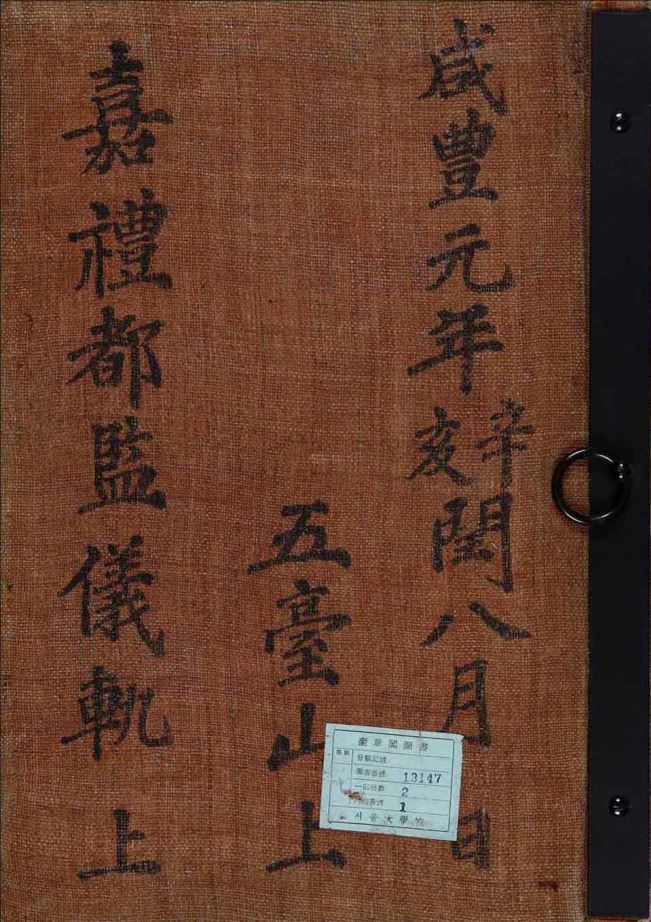 咸豐元年辛亥閏八月 日
五臺山上
嘉禮都監儀軌 上
奎章閣圖書
分類記號
圖書番號 13147
2
1
서울大學校